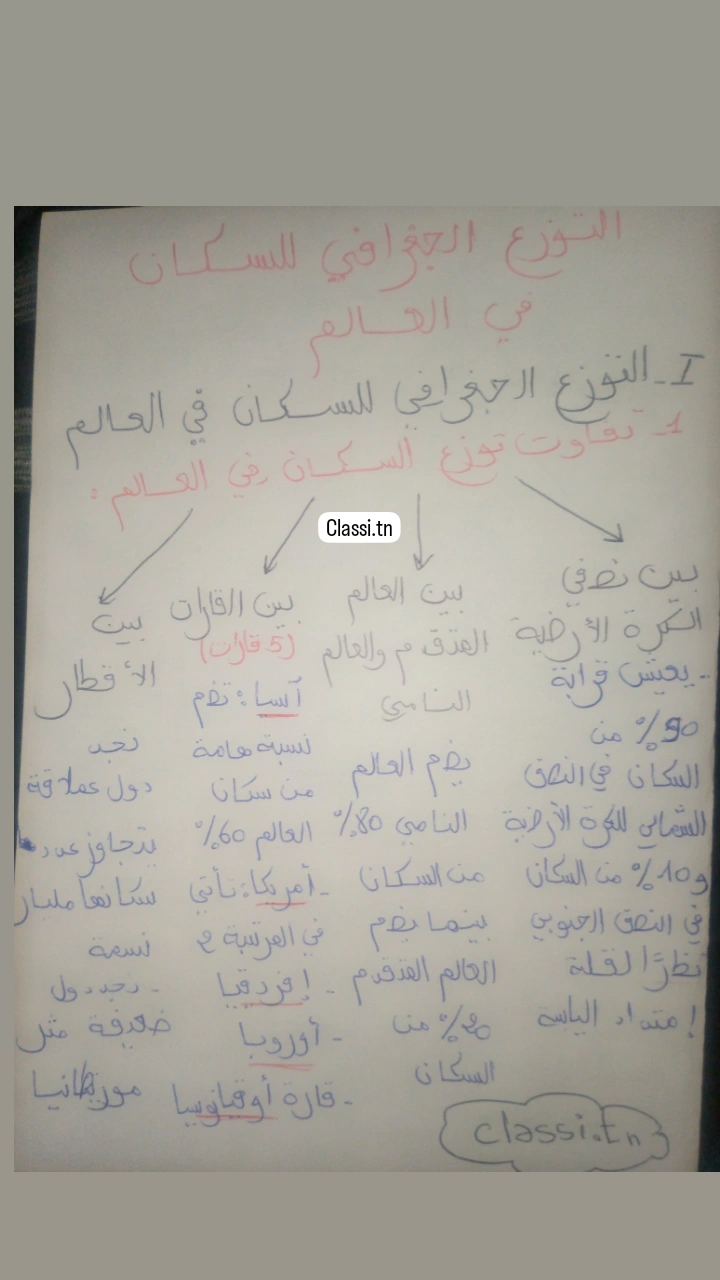 التوزع الجغرافي للسكان
في العالم
I - التوزع الجغرافي للسكان في العالم
1 - تفاوت توزع السكان في العالم :
Classi.tn
بين نصفي
الكرة الأرضية
- يعيش قرابة
90% من
السكان في النصف
الشمالي للكرة الأرضية
و10% من السكان
في النصف الجنوبي
نظرًا لقلة
إمتداد اليابسة
بين العالم
المتقدم والعالم
النامي
يضم العالم
النامي 80%
من السكان
بينما يضم
العالم المتقدم
20% من
السكان
بين القارات
(5 قارات)
آسيا : تضم
نسبة هامة
من سكان
العالم 60%
- أمريكا : تأتي
في المرتبة 2
- إفريقيا
- أوروبا
- قارة أوقيانوسيا
بين
الأقطار
نجد
دول عملاقة
يتجاوز عدد
سكانها مليار
نسمة
- نجد دول
ضعيفة مثل
موريطانيا
classi.tn